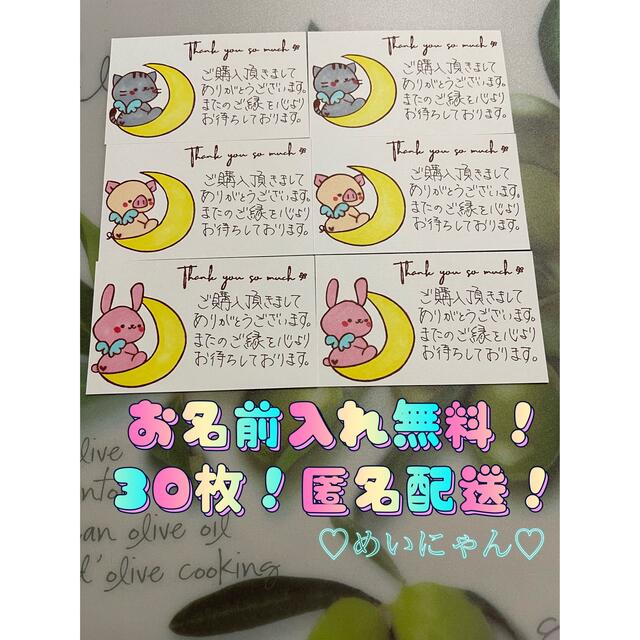 Thank you so much
ご購入頂きまして
ありがとうございます。
またのご縁を心より
お待ちしております。
Thank you so much
ご購入頂きまして
ありがとうございます。
またのご縁を心より
お待ちしております。
Thank you so much
ご購入頂きまして
ありがとうございます。
またのご縁を心より
お待ちしております。
Thank you so much
ご購入頂きまして
ありがとうございます。
またのご縁を心より
お待ちしております。
Thank you so much
ご購入頂きまして
ありがとうございます。
またのご縁を心より
お待ちしております。
Thank you so much
ご購入頂きまして
ありがとうございます。
またのご縁を心より
お待ちしております。
お名前入れ無料！
30枚！匿名配送！
♡めいにゃん♡
live
an olive oil
d'olive cooking